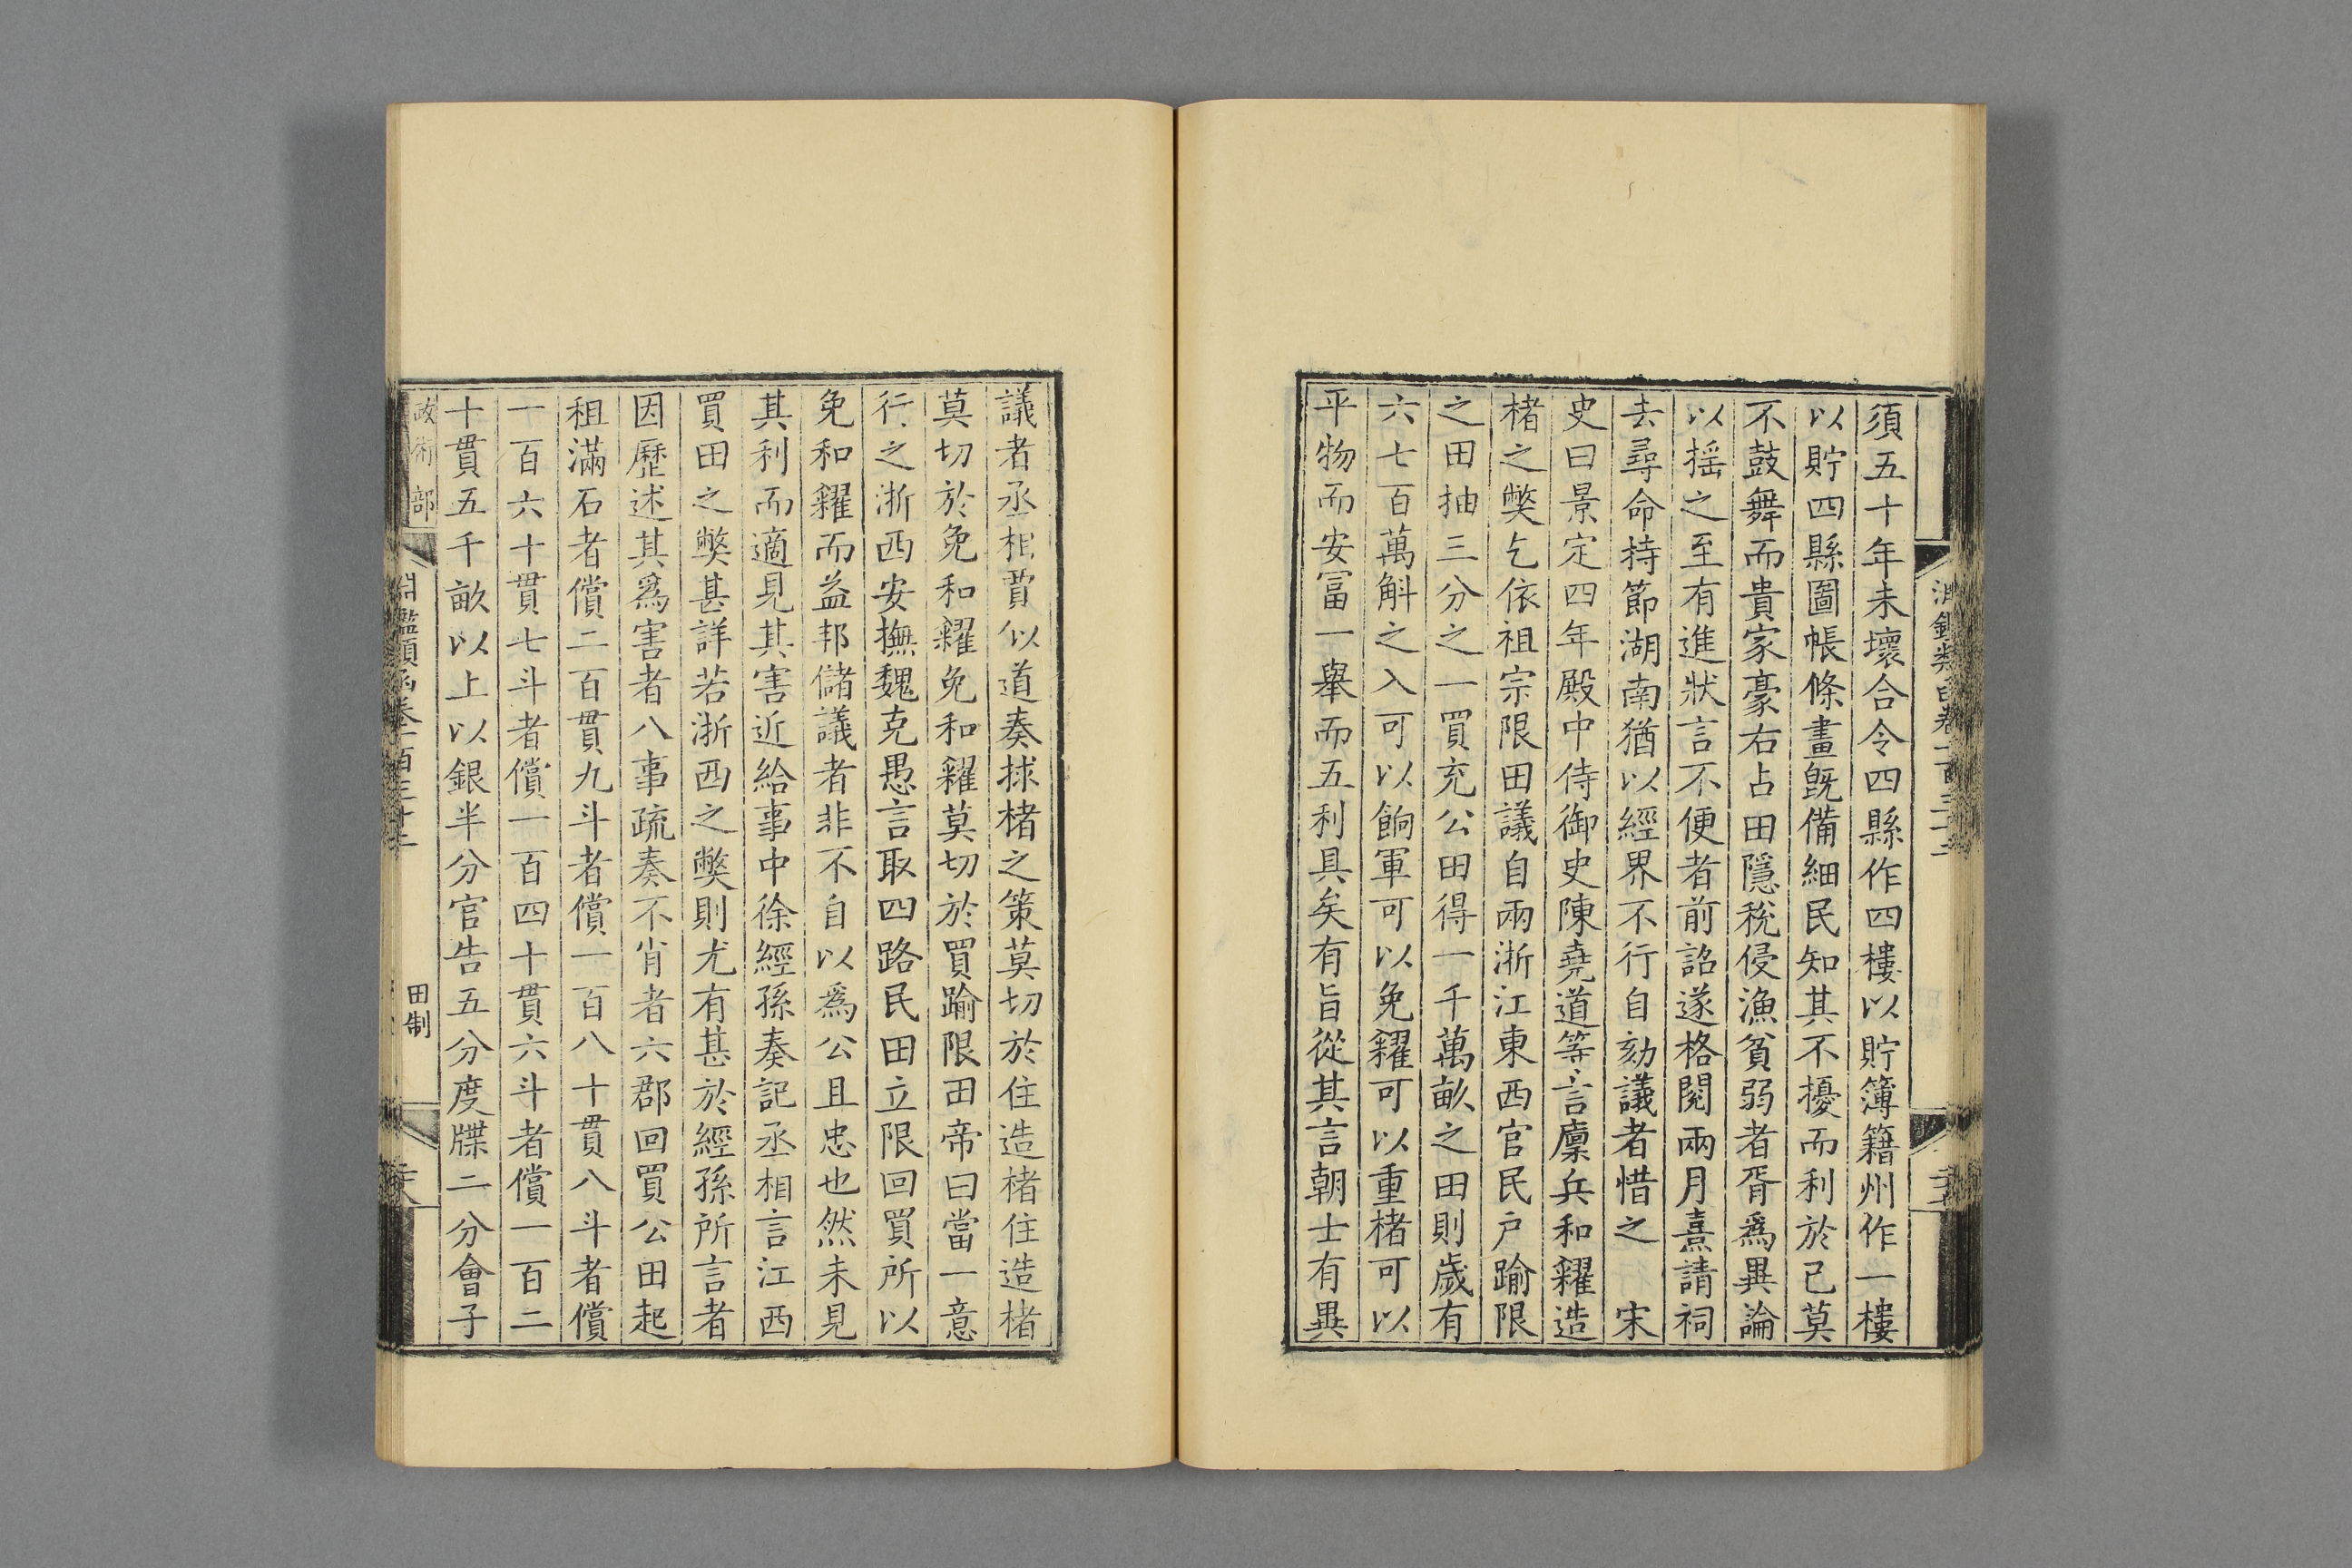 須五十年未壞合令四縣作四樓以貯簿籍州作一樓
以貯四縣圖帳條畫旣備細民知其不擾而利於己莫
不鼓舞而貴家豪右占田隱稅侵漁貧弱者胥爲異論
以揺之至有進狀言不便者前詔遂格閱兩月熹請祠
去尋命持節湖南猶以經界不行自劾議者惜之 宋
史曰景定四年殿中侍御史陳堯道等言廪兵和糴造
楮之弊乞依祖宗限田議自兩浙江東西官民户踰限
之田抽三分之一買充公田得一千萬畝之田則歲有
六七百萬斛之入可以餉軍可以免糴可以重楮可以
平物而安冨一舉而五利具矣有旨從其言朝士有異
議者丞相賈似道奏捄楮之策莫切於住造楮住造楮
莫切於免和糴免和糴莫切於買踰限田帝曰當一意
行之浙西安撫魏克愚言取四路民田立限回買所以
免和糴而益邦儲議者非不自以爲公且忠也然未見
其利而適見其害近給事中徐經孫奏記丞相言江西
買田之弊甚詳若浙西之弊則尤有甚於經孫所言者
因歷述其爲害者八事疏奏不肯者六郡回買公田起
租滿石者償二百貫九斗者償一百八十貫八斗者償
一百六十貫七斗者償一百四十貫六斗者償一百二
十貫五千畝以上以銀半分官告五分度牒二分會子
政術部
田制